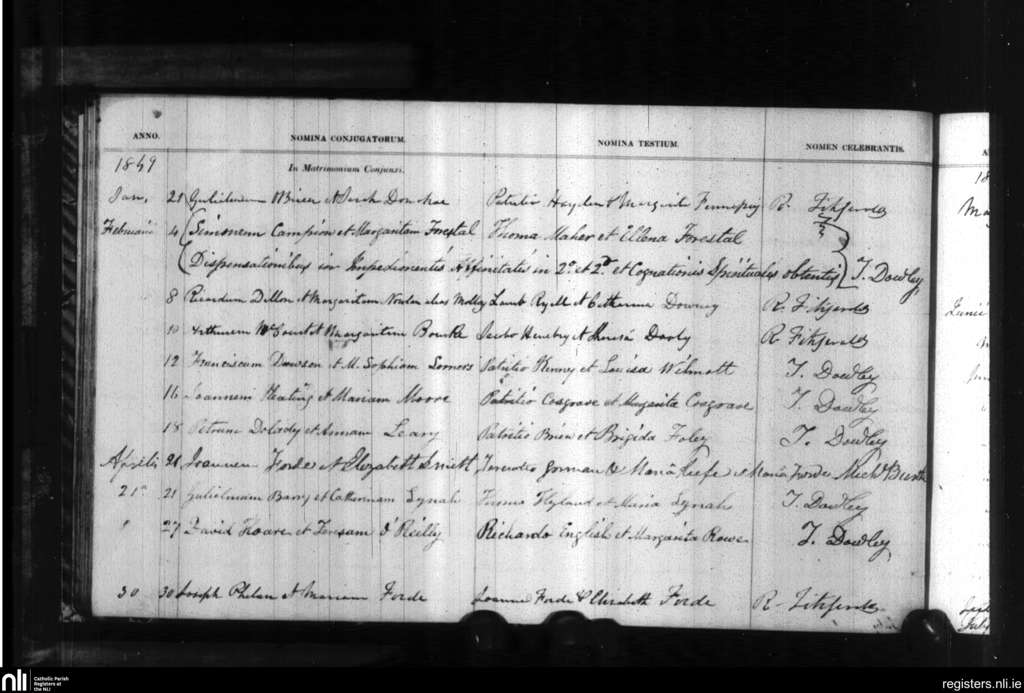 ANNO. NOMINA CONJUGATORUM. NOMINA TESTIUM. NOMEN CELEBRANTIS.
1849 In Matrimonium Conjunxi.
Jan. 21 Gulielmum Brien et Sarah Donohoe Patritio Hayden & Margarita Finnessy R. Fitzjerald
Februarii 4 Simonem Campion et Margaritam Forestal Thoma Maher et Ellena Forestal
Dispensationibus in Impedimentis Affinitatis in 2º et 2º et Cognationis Spiritualis obtentis T. Dowley
8 Ricardum Dillon et Margaritam Nowlan alias Molloy Lamb Ryall et Catherine Downey R. Fitzjerald
10 Arthurum McCourt et Margaritam Bourke Jacobo Hendry et Theresa Darby R Fitzjerald
12 Franciscum Dawson et M. Sophiam Somers Patritio Kenny et Louisa Wilmott T. Dowley
16 Joannem Keating et Mariam Moore Patritio Cosgrave et Margarita Cosgrave T. Dowley
18 Petrum Delady et Annam Leary Patritio Brien et Brigida Foley T. Dowley
Aprilis 21 Joannem Forde et Elyzabeth Smith Terentio Gorman & Maria Keefe et Maria Forde Michl
21 21 Gulielmum Barry et Catherinam Lynah Hyland et Maria Lynah T. Dowley
" 27 David Hoare et Teresam O'Reilly Richardo English et Margarita Rowe T. Dowley
30 30 Joseph Phelan et Mariam Forde Joanne Forde & Elizabeth Forde R. Fitzjerald
nli Catholic Parish
Registers at
the NLI
registers.nli.ie